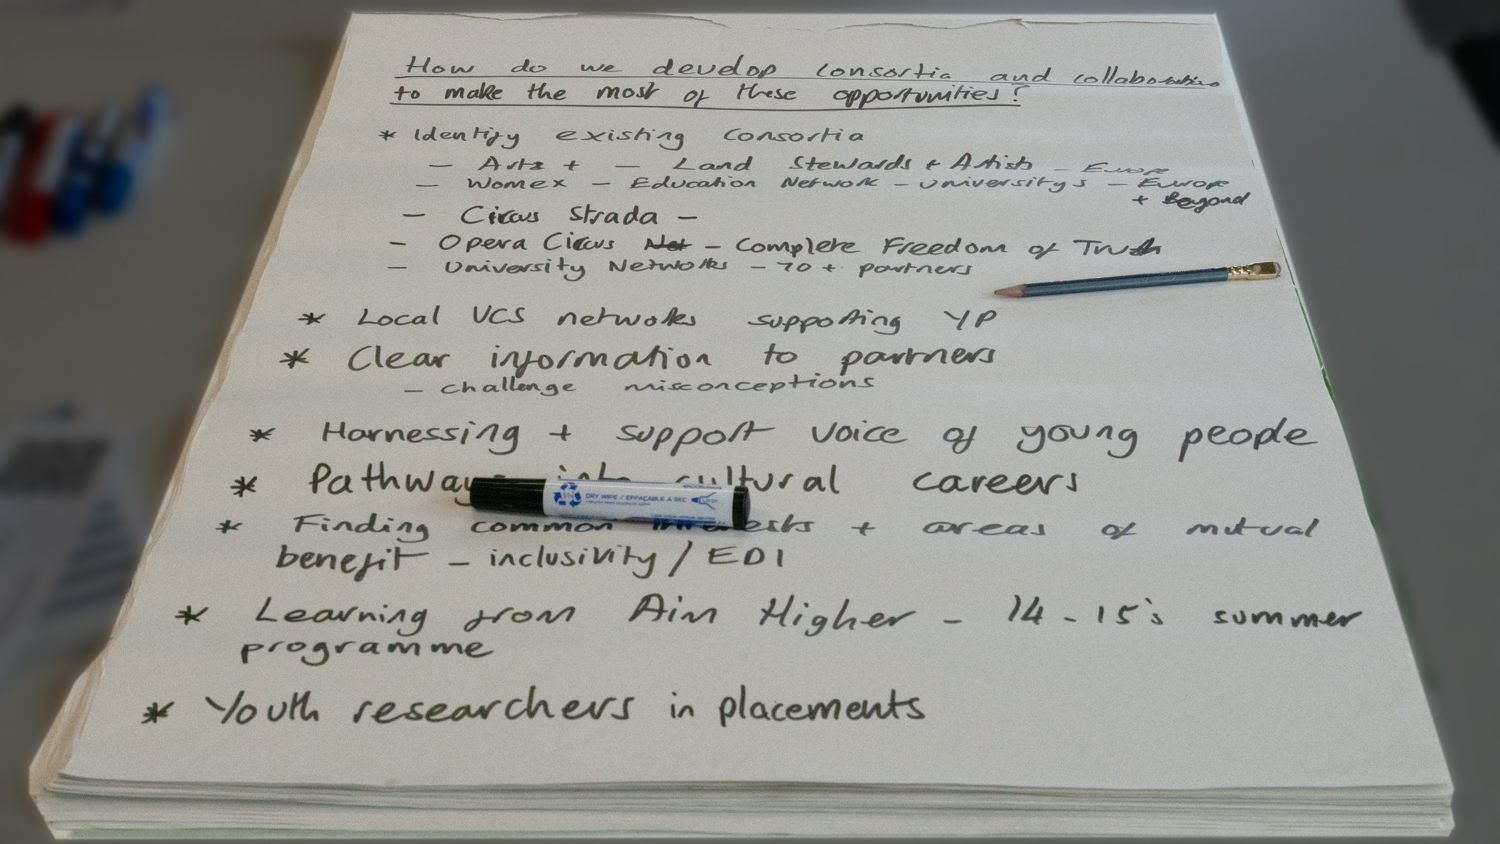 How do we develop consortia and collaborations
to make the most of these opportunities?
* Identify existing consortia
- Arts + - Land Stewards + Artists - Europe
- Womex - Education Network - Universitys - Europe
+ Beyond
- Circus Strada -
- Opera Circus Net - Complete Freedom of Truth
- University Networks - 70 + partners
* Local VCS networks supporting YP
* Clear information to partners
- challenge misconceptions
* Harnessing + support voice of young people
* Pathways into cultural careers
DRY WIPE / EFFAÇABLE A SEC
* Finding common interests + areas of mutual
benefit - inclusivity / EDI
* Learning from Aim Higher - 14 - 15's summer
programme
* Youth researchers in placements